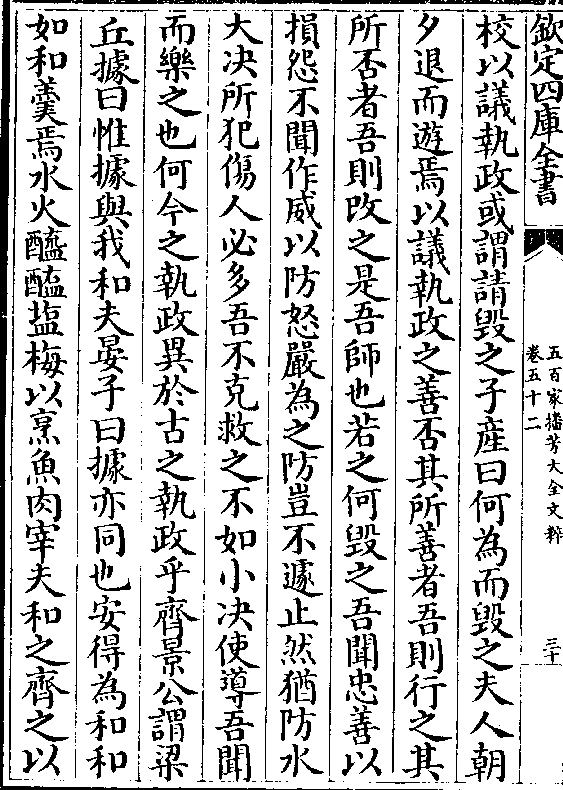 欽定四庫全書
五百家播芳大全文粹
卷五十二
三十
校以議執政或謂請毀之子產曰何為而毀之夫人朝
夕退而遊焉以議執政之善否其所善者吾則行之其
所否者吾則改之是吾師也若之何毀之吾聞忠善以
損怨不聞作威以防怒嚴為之防豈不遽止然猶防水
大决所犯傷人必多吾不克救之不如小决使導吾聞
而樂之也何今之執政異於古之執政乎齊景公謂梁
丘據曰惟據與我和夫晏子曰據亦同也安得為和和
如和羹焉水火醯醢塩梅以烹魚肉宰夫和之齊之以